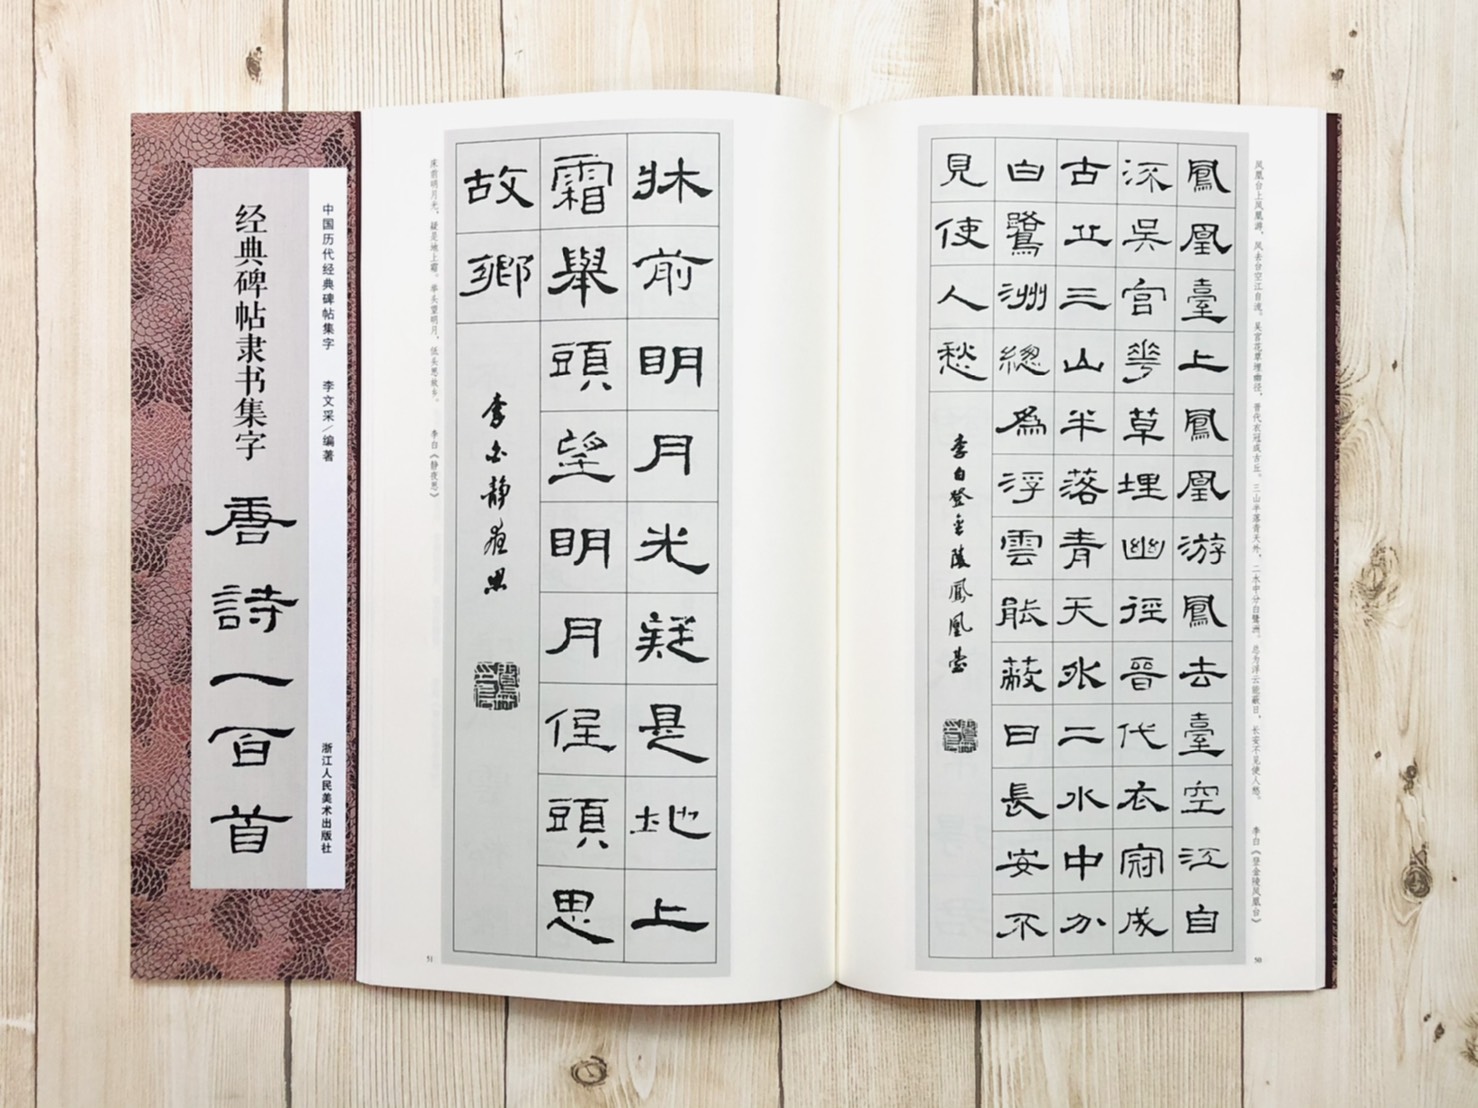 凤凰台上凤凰游，凤去台空江自流。吴宫花草埋幽径，晋代衣冠成古丘。三山半落青天外，二水中分白鹭洲。总为浮云能蔽日，长安不见使人愁。 李白《登金陵凤凰台》
鳳凰臺上鳳凰游鳳去臺空江自
流吳宮華草埋幽徑晉代衣冠成
古丘三山半落青天外二水中分
白鷺洲總為浮雲能蔽日長安不
見使人愁
李白登金陵鳳凰臺
50
牀前明月光疑是地上
霜舉頭望明月低頭思
故鄉
李白靜夜思
床前明月光，疑是地上霜。举头望明月，低头思故乡。 李白《静夜思》
51
中国历代经典碑帖集字 李文采／编著 浙江人民美术出版社
经典碑帖隶书集字 唐詩一百首